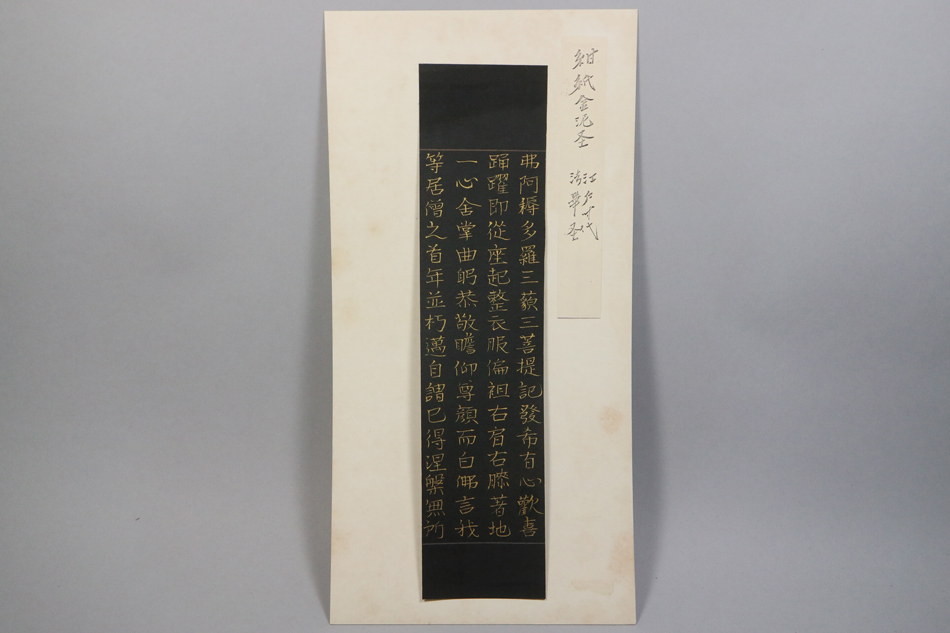 紺紙金泥圣
江戸古代
清華圣
弗阿耨多羅三藐三菩提記發布有心歡喜
踊躍即從座起整衣服偏袒右肩右膝著地
一心合掌曲躬恭敬瞻仰尊顏而白佛言我
等居僧之首年並朽邁自謂已得涅槃無所